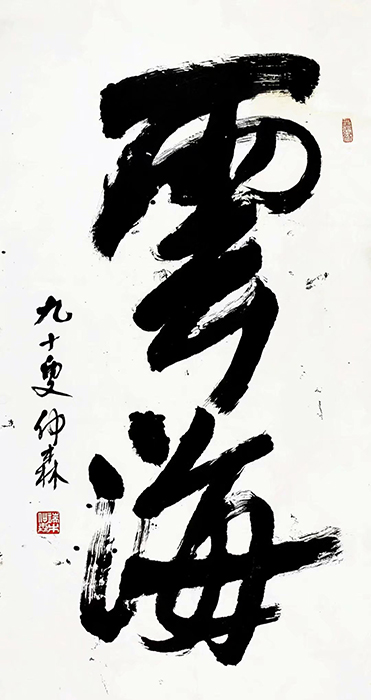 雲海
九十叟仲森